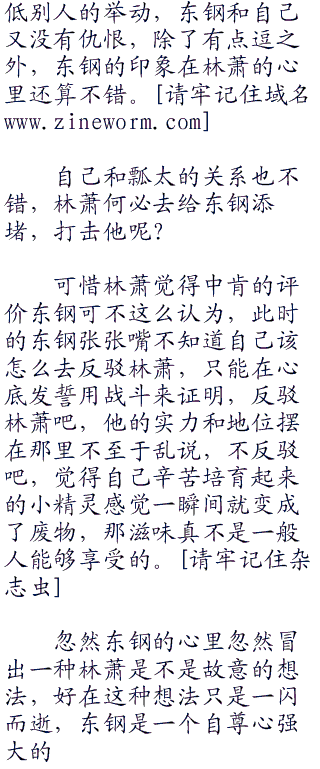 低别人的举动，东钢和自己
又没有仇恨，除了有点逗之
外，东钢的印象在林萧的心
里还算不错。[请牢记住域名
www.zineworm.com]
自己和瓢太的关系也不
错，林萧何必去给东钢添
堵，打击他呢？
可惜林萧觉得中肯的评
价东钢可不这么认为，此时
的东钢张张嘴不知道自己该
怎么去反驳林萧，只能在心
底发誓用战斗来证明，反驳
林萧吧，他的实力和地位摆
在那里不至于乱说，不反驳
吧，觉得自己辛苦培育起来
的小精灵感觉一瞬间就变成
了废物，那滋味真不是一般
人能够享受的。[请牢记住杂
志虫]
忽然东钢的心里忽然冒
出一种林萧是不是故意的想
法，好在这种想法只是一闪
而逝，东钢是一个自尊心强
大的